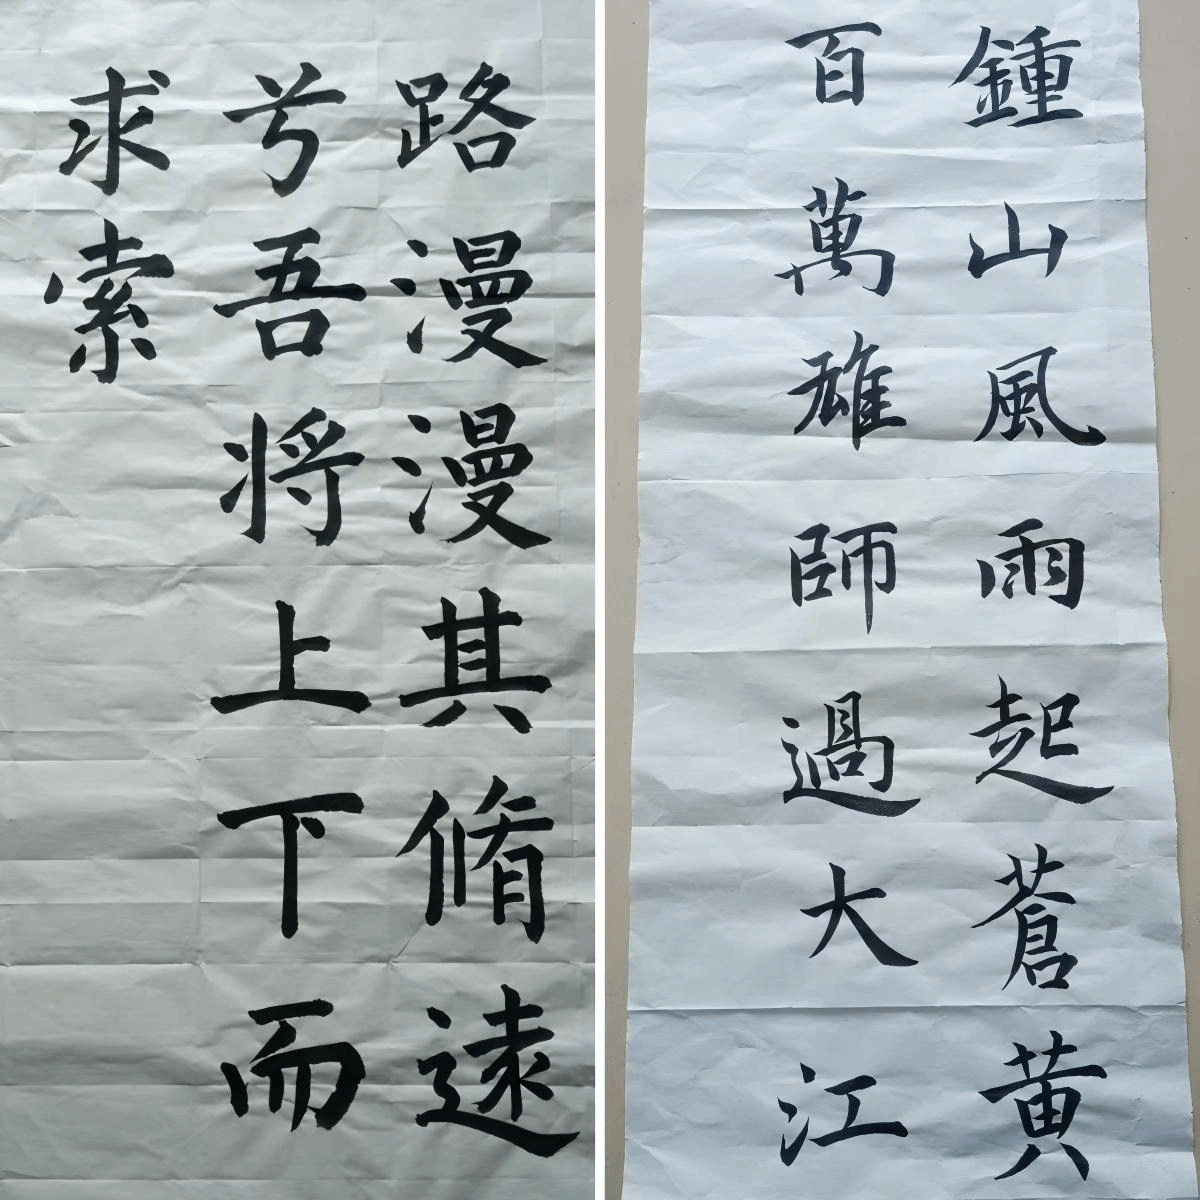 路漫漫其脩遠
兮吾将上下而
求索
鍾山風雨起蒼黄
百萬雄師過大江